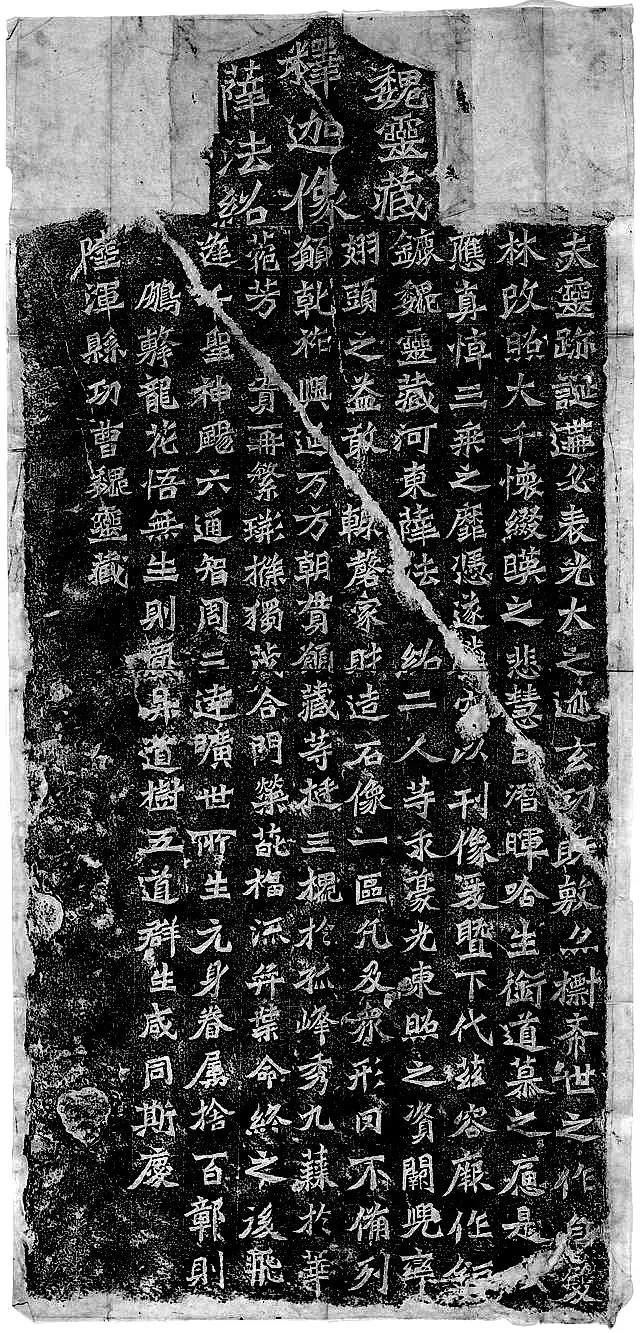 魏靈藏
釋迦像
薛法紹
夫靈跡誕遘必表光大之迹玄功既敷亦標希世之作雙
林改昭大千懷綴暎之悲慧日潛暉唅生銜道慕之痛是以
應真悼三乘之靡憑遂騰空以刊像爰暨下代茲容厥作鉅
鏕魏靈藏河東薛法紹二人等求豪光東照之資闕兜率
翅頭之益敢輒磬家財造石像一區凡及眾形罔不備列
願乾祚興延万方朝貫願藏等挺三槐於孤峰秀九蕀於華
菀芳實再繁荊條獨茂合門榮葩福流奕葉命終之後飛
逢千聖神颺六通智周三達曠世所生元身眷屬捨百鄣則
鵬擊龍花悟無生則鳳昇道樹五道群生咸同斯慶
陸渾縣功曹魏靈藏